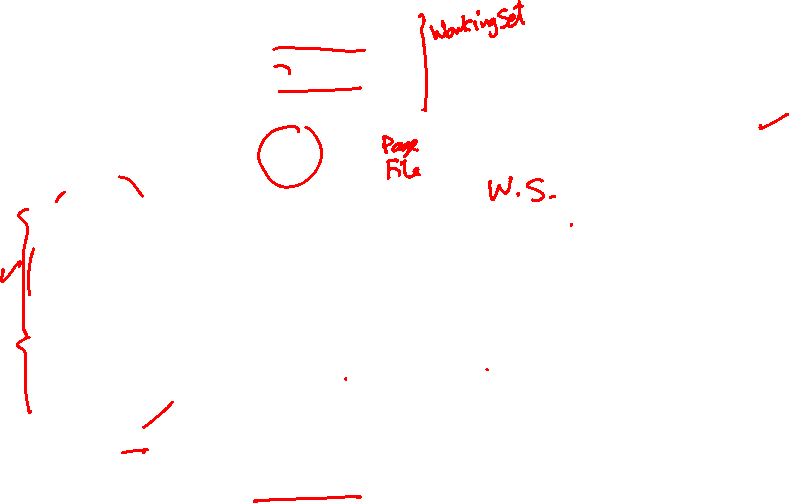 Working Set
Page
File
W.S.